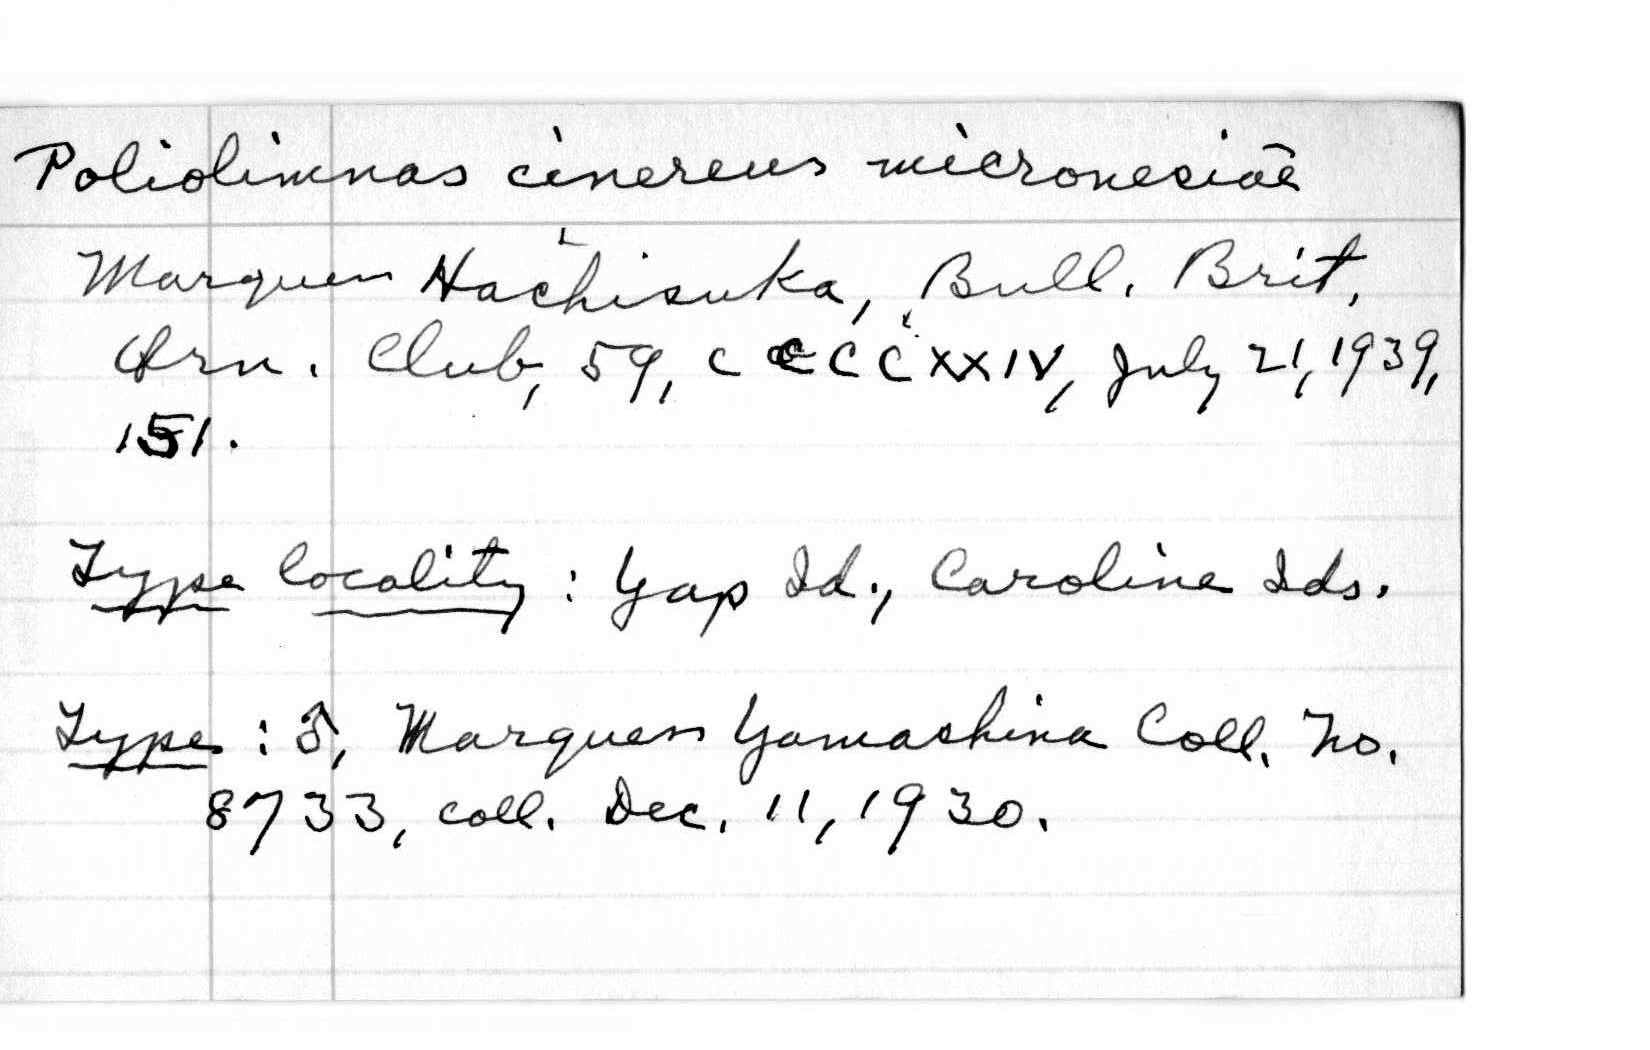 Poliolimnas cinereus micronesiae
Marquess Hachisuka, Bull. Brit.
Orn. Club, 59, CCCCXXIV, July 21, 1939,
151.
Type locality : Yap Id., Caroline Ids.
Type : ♂, Marquess Yamashina Coll. No.
8733, coll. Dec. 11, 1930.